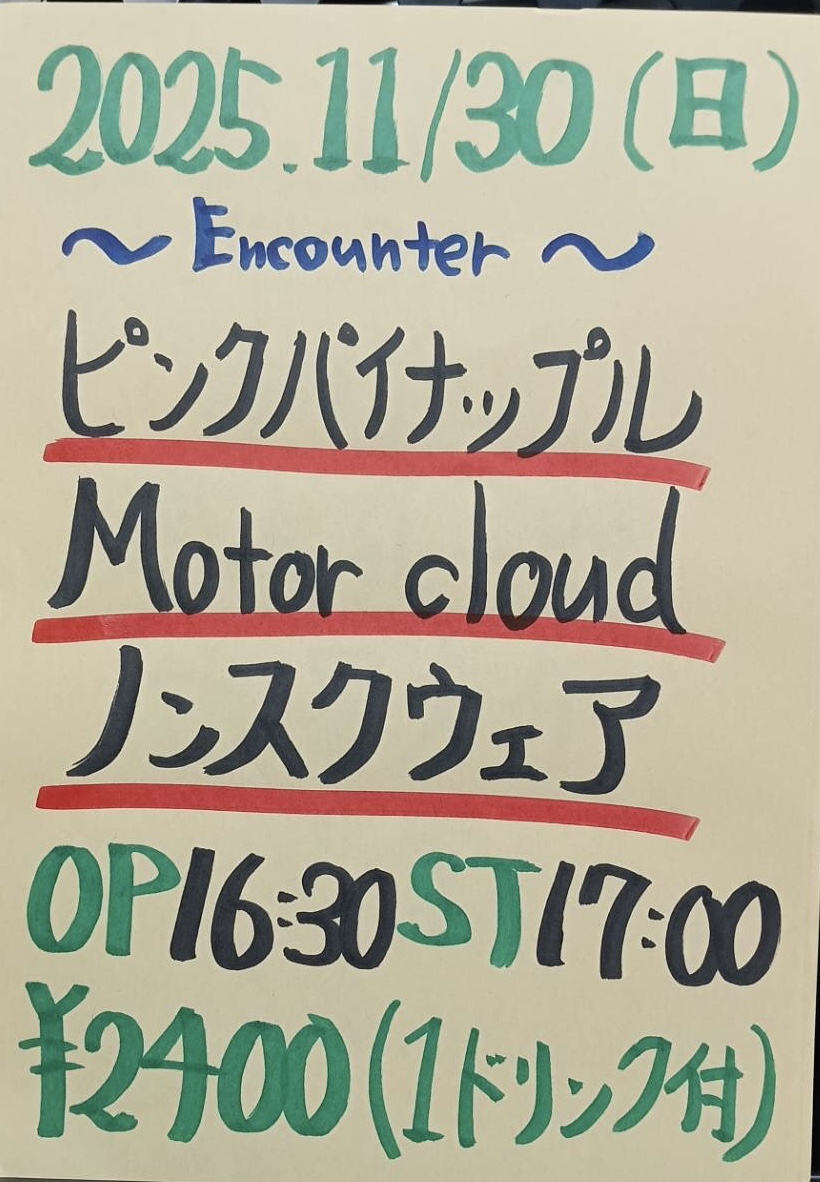 2025.11/30(日)
〜Encounter〜
ピンクパイナップル
Motor cloud
ノンスクウェア
OP16:30ST17:00
¥2400(1ドリンク付)